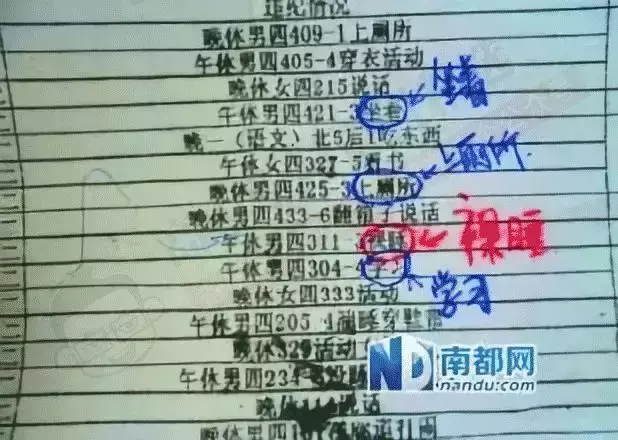 违纪情况
晚休男四409-1上厕所
午休男四405-4穿衣活动
晚休女四215说话
午休男四421-3坐着
坐着
晚一(语文)北5后1吃东西
午休女四327-5看书
上厕所
晚休男四425-3上厕所
晚休男四433-6翻箱子说话
午休男四311-裸睡
裸睡
午休男四304-4学习
学习
晚休女四333活动
午休男四205
晚休 329活动
午休男四234
晚休 说话
晚休男四
南都网
nandu.com